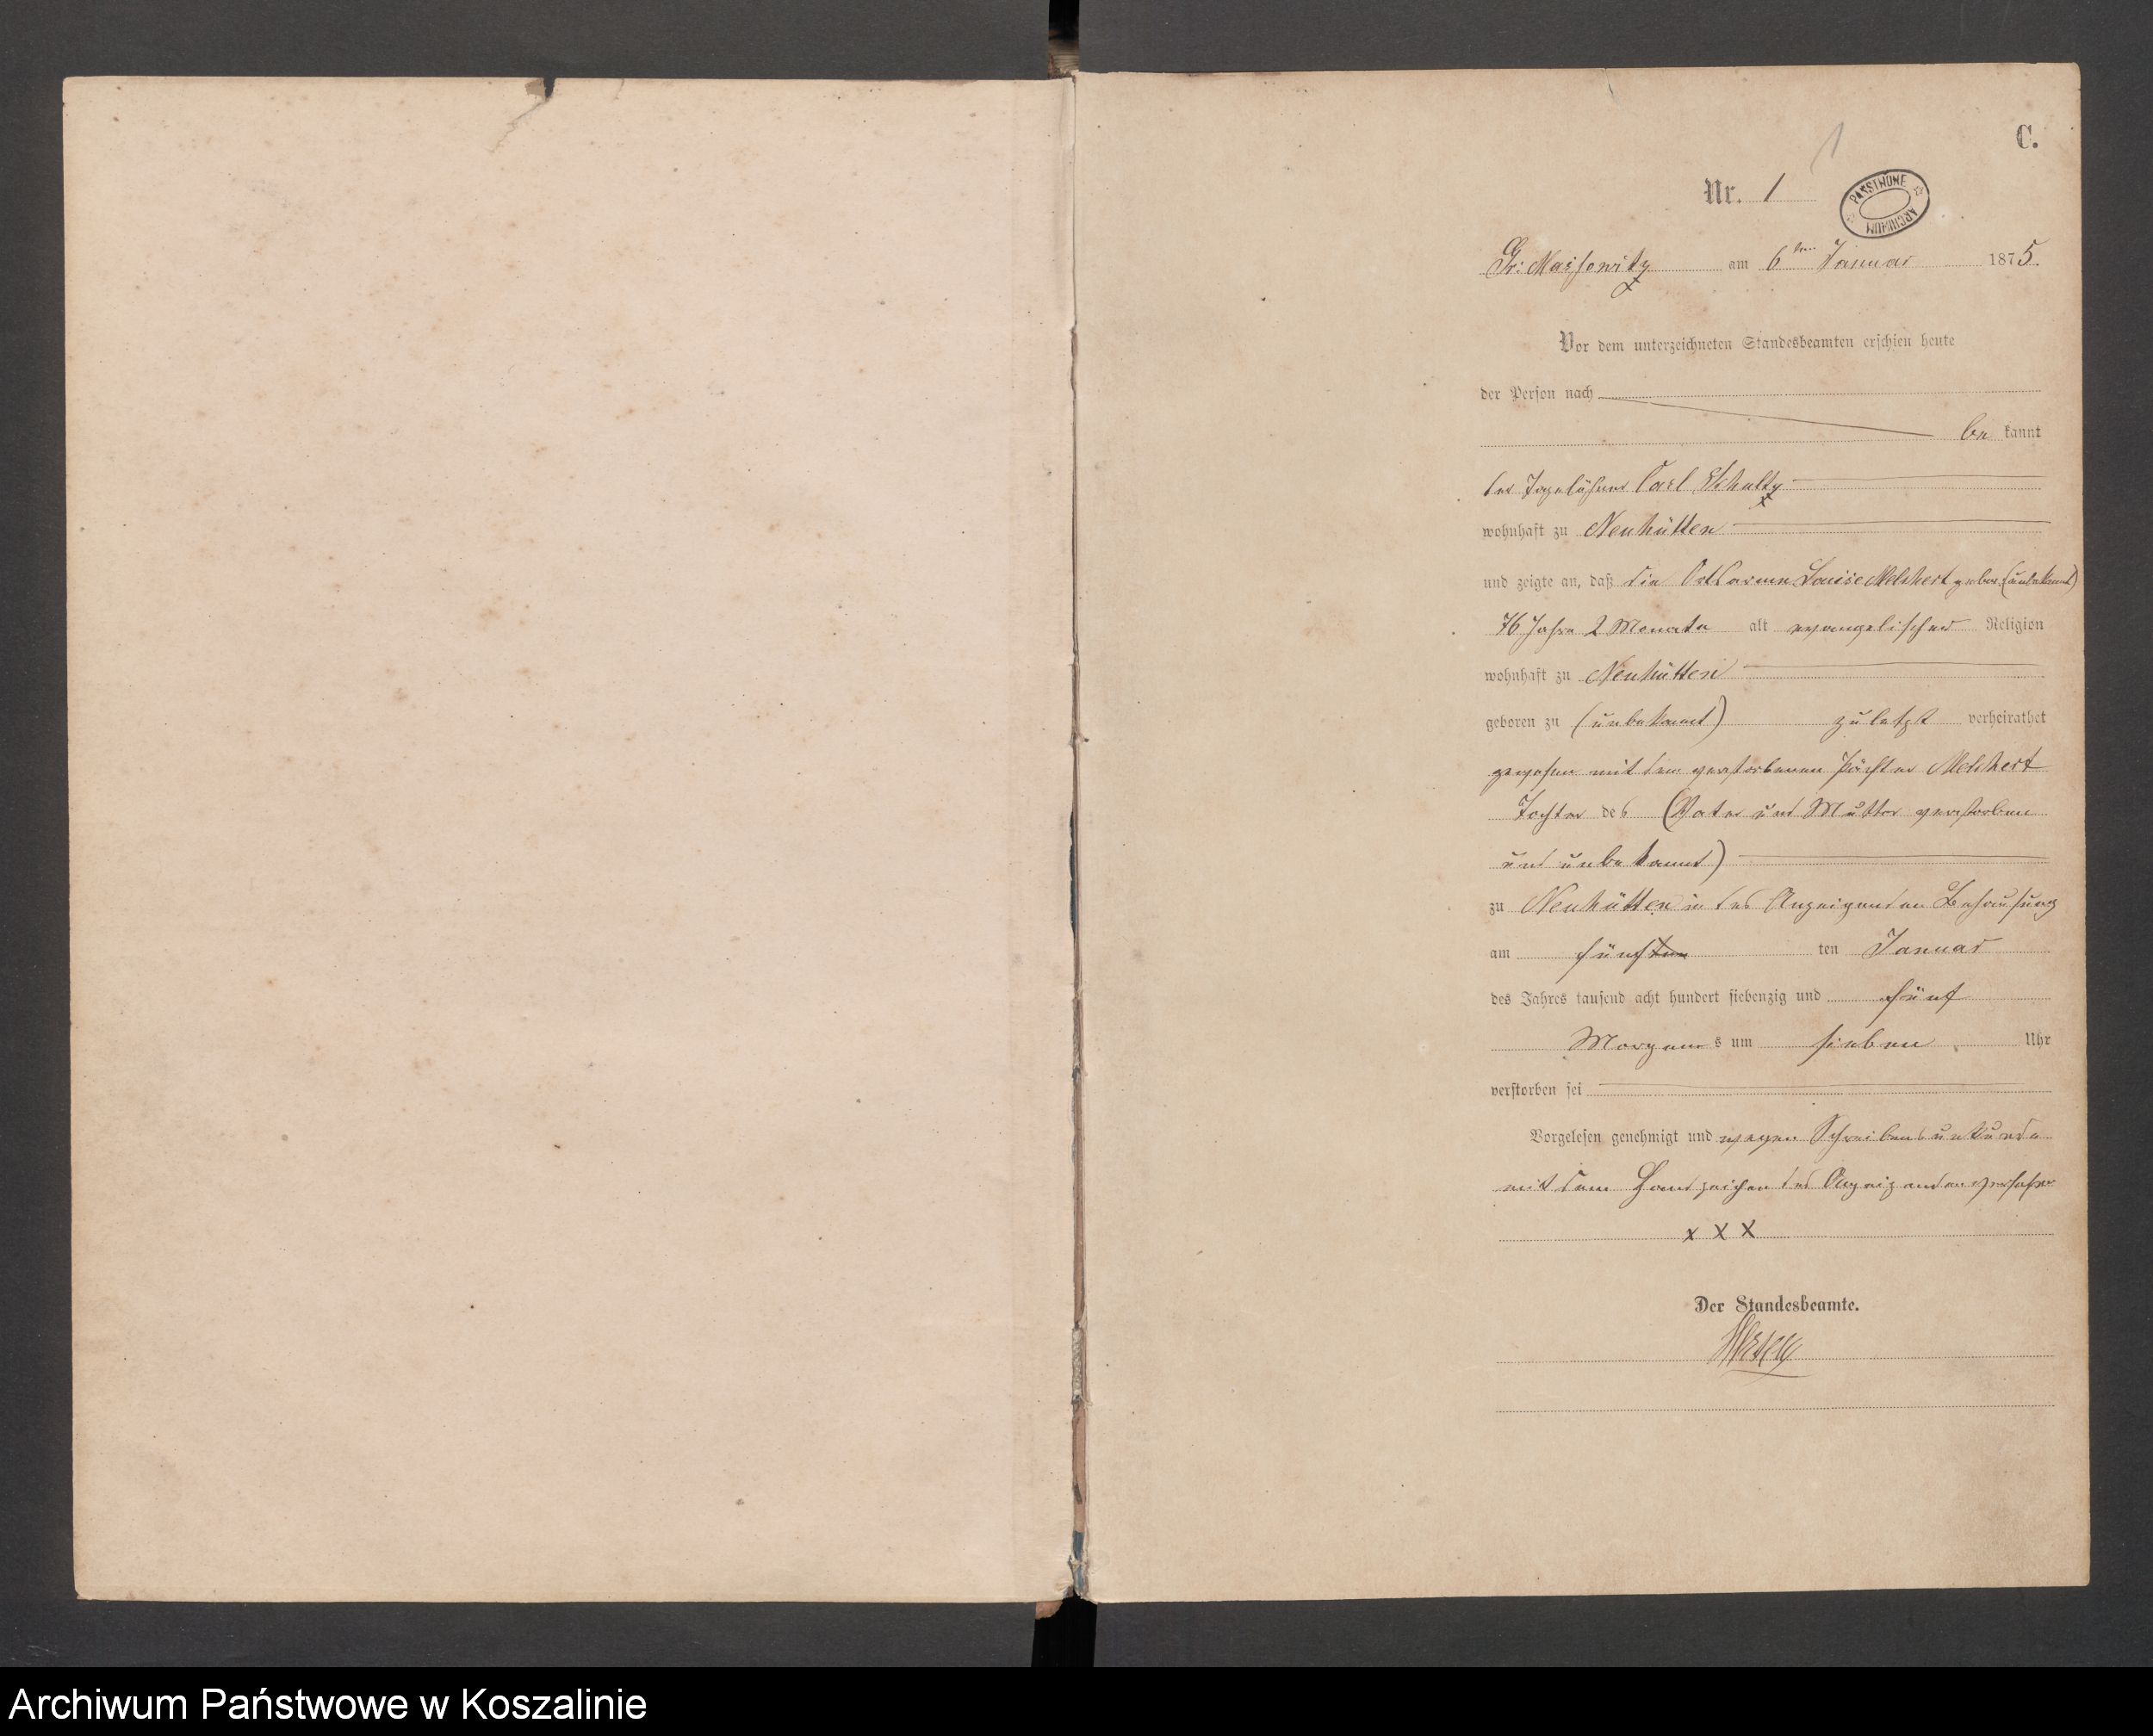 C.
1
Nr. 1
PAŃSTWOWE ARCHIWUM
Gr: Massowitz am 6ten Januar 1875.
Vor dem unterzeichneten Standesbeamten erschien heute
der Person nach
be kannt
der Tagelöhner Carl Schultz
wohnhaft zu Neuhütten
und zeigte an, daß die Ortsarme Louise Melchert gebor. (unbekannt)
76 Jahre 2 Monate alt evangelischer Religion
wohnhaft zu Neuhütten
geboren zu (unbekannt) zuletzt verheirathet
gewesen mit dem verstorbenen Pächter Melchert
Tochter des (Vater und Mutter verstorben
und unbekannt)
zu Neuhütten in des Anzeigenden Behausung
am fünften ten Januar
des Jahres tausend acht hundert siebenzig und fünf
Morgens um sieben Uhr
verstorben sei
Vorgelesen genehmigt und wegen Schreibensunkunde
mit dem Handzeichen des Anzeigenden versehen
x x x
Der Standesbeamte.
Archiwum Państwowe w Koszalinie